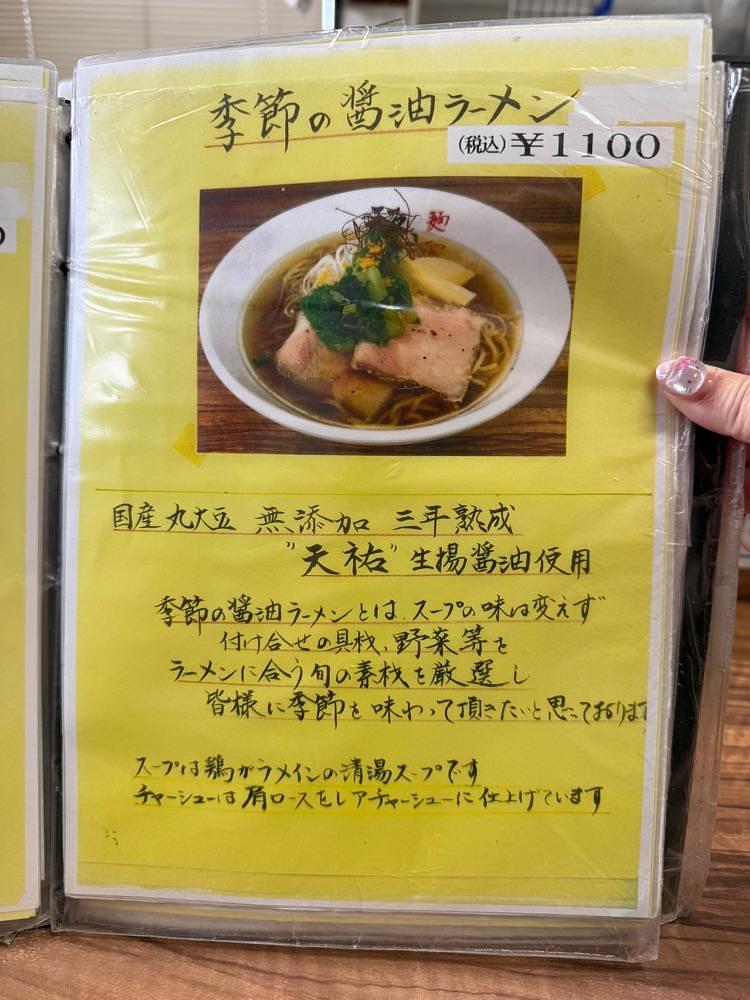 季節の醤油ラーメン
(税込)¥1100
麺
国産丸大豆 無添加 三年熟成
"天祐"生揚醤油使用
季節の醤油ラーメンとは、スープの味は変えず
付け合せの具材、野菜等を
ラーメンに合う旬の素材を厳選し
皆様に季節を味わって頂きたいと思っております
スープは鶏ガラメインの清湯スープです
チャーシューは肩ロースをレアチャーシューに仕上げています